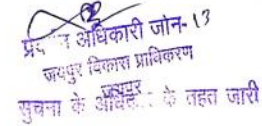 अधिकारी जोन-13
जयपुर विकास प्राधिकरण
जयपुर
सूचना के अधिकार के तहत जारी